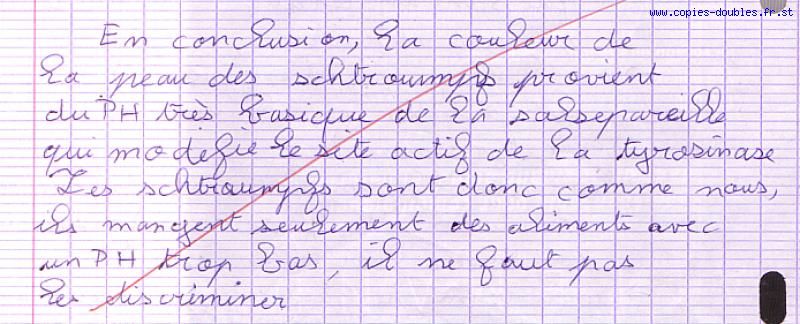 www.copies-doubles.fr.st
En conclusion, la couleur de
la peau des schtroumpfs provient
du PH très basique de la salsepareille
qui modifie le site actif de la tyrosinase
Les schtroumpfs sont donc comme nous,
ils mangent seulement des aliments avec
un PH trop bas, il ne faut pas
les discriminer